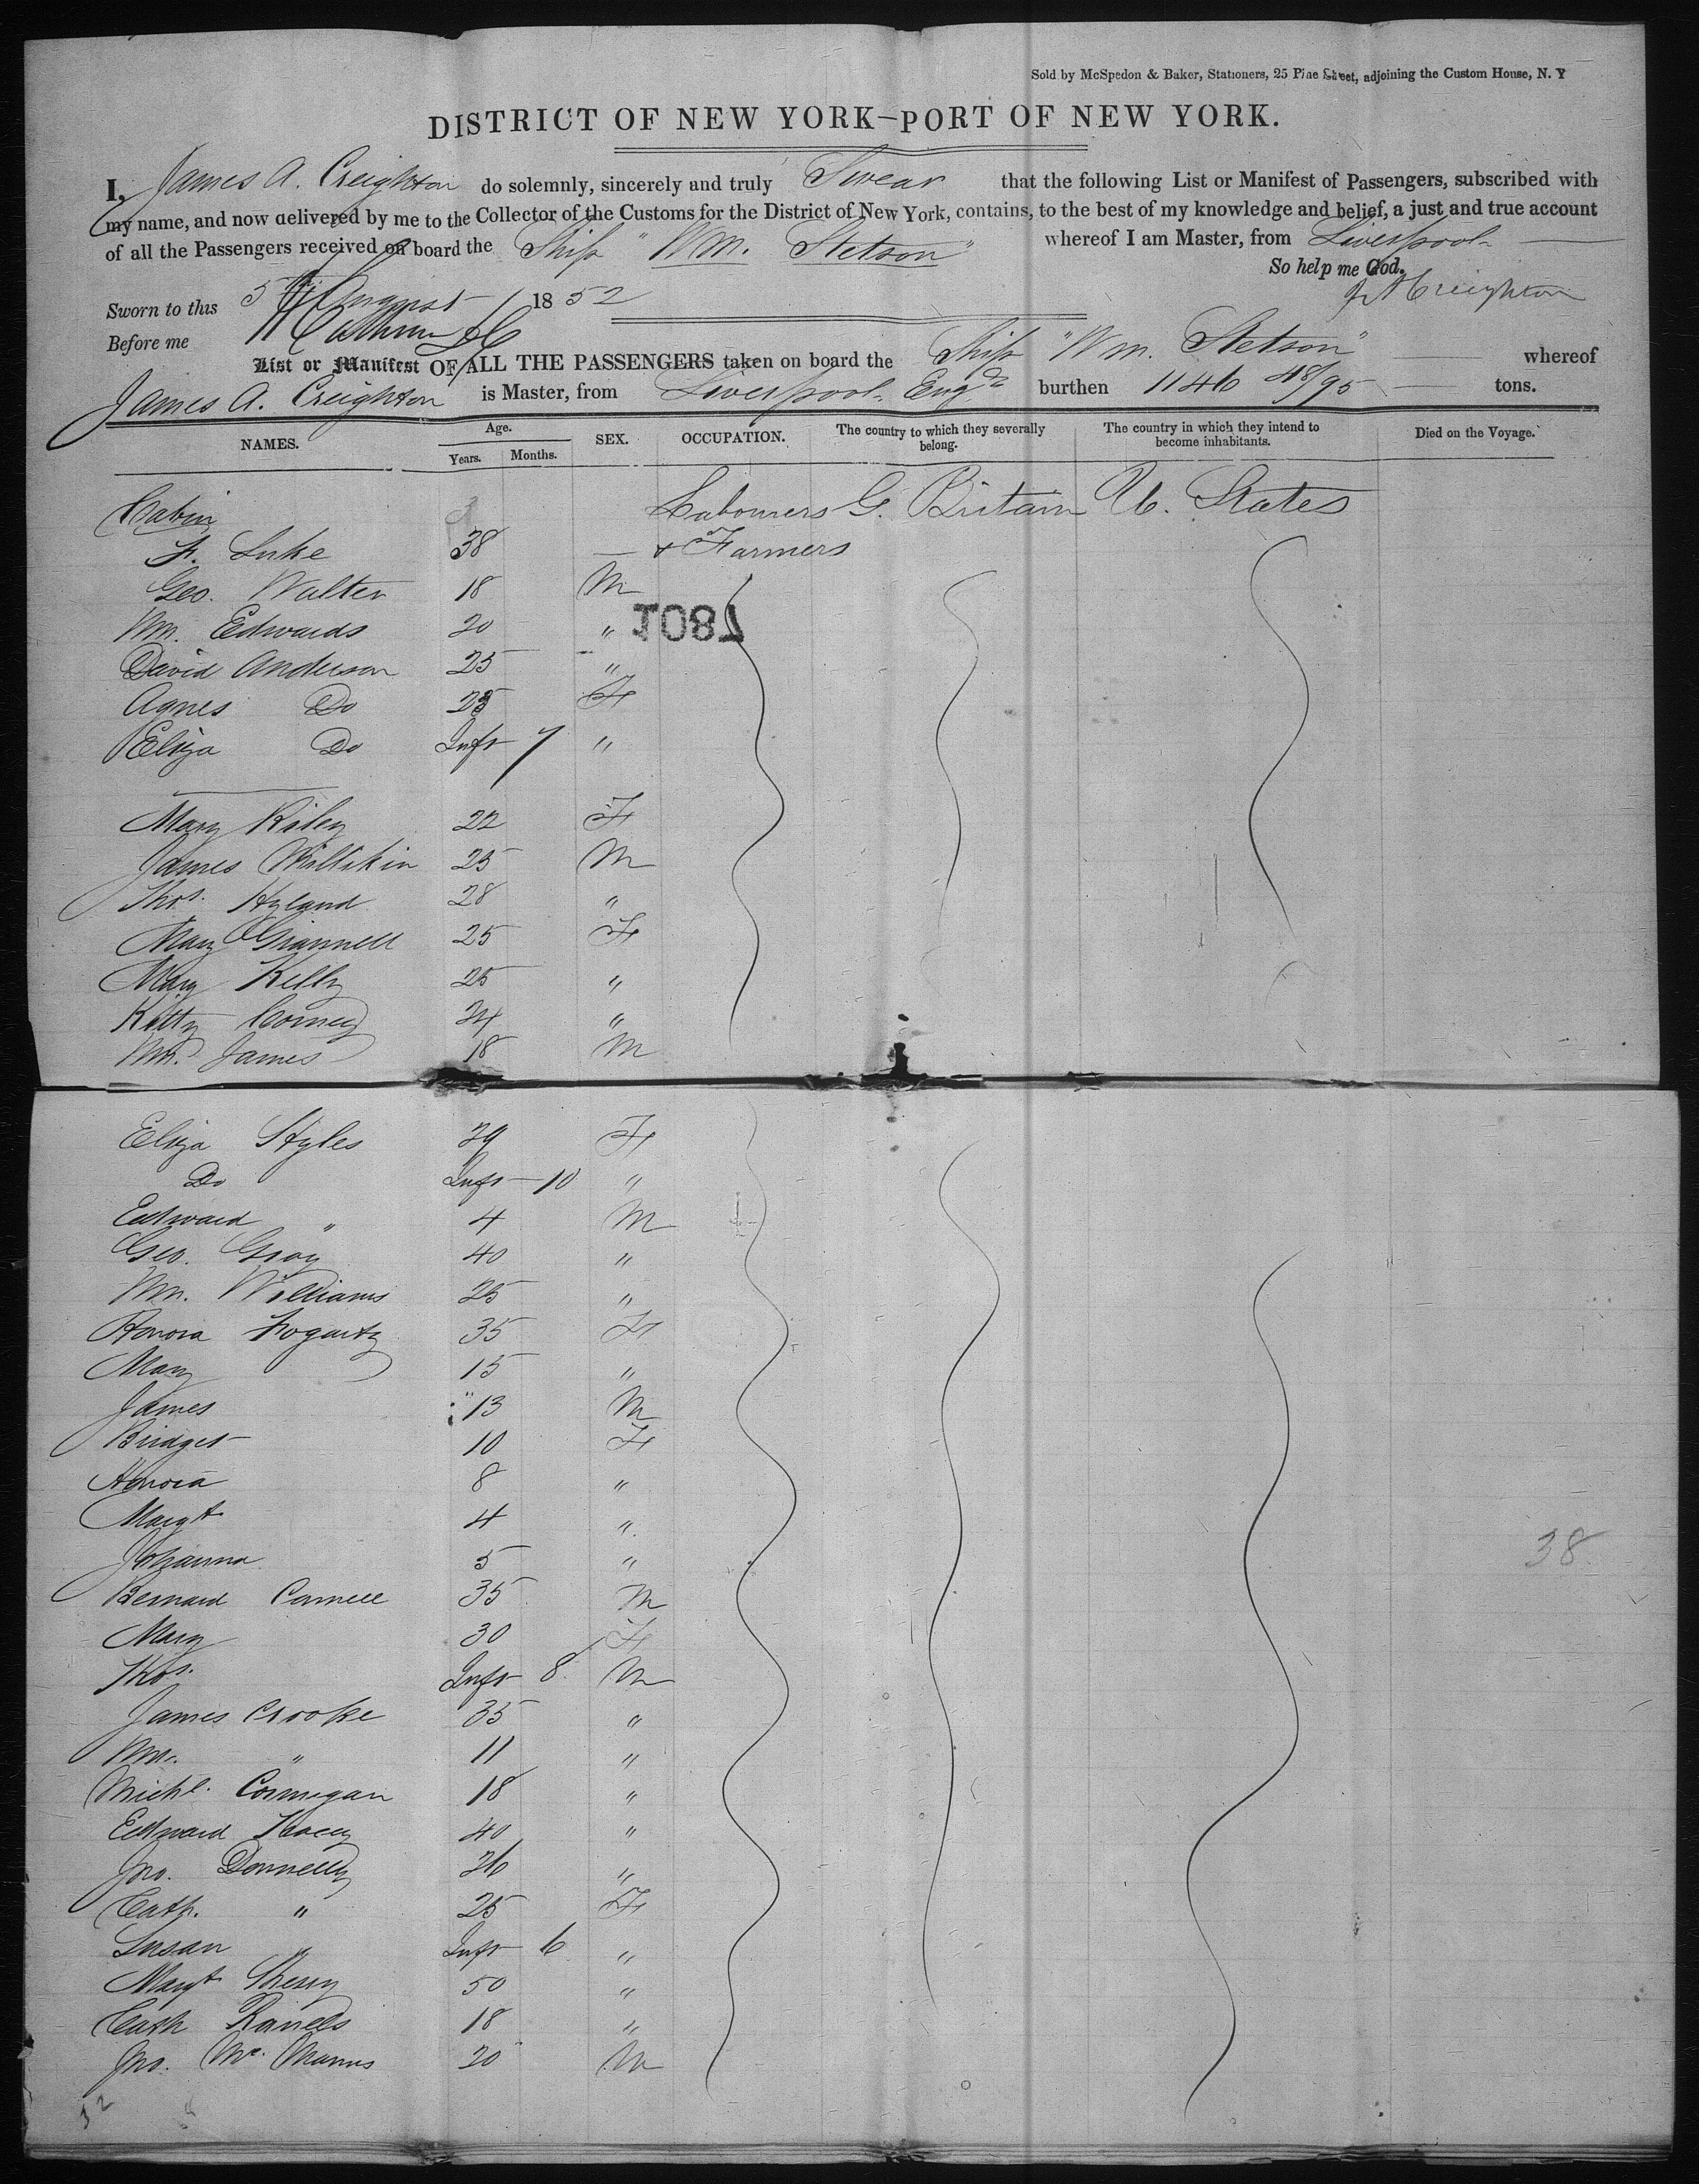 Sold by McSpedon & Baker, Stationers, 25 Pine Street, adjoining the Custom House, N. Y
DISTRICT OF NEW YORK—PORT OF NEW YORK.
I, James A. Creighton do solemnly, sincerely and truly Swear that the following List or Manifest of Passengers, subscribed with
my name, and now delivered by me to the Collector of the Customs for the District of New York, contains, to the best of my knowledge and belief, a just and true account
of all the Passengers received on board the Ship "Wm. Stetson" whereof I am Master, from Liverpool
So help me God.
Sworn to this 5th August 1852 J A Creighton
Before me
List or Manifest OF ALL THE PASSENGERS taken on board the Ship "Wm. Stetson" whereof
James A. Creighton is Master, from Liverpool, Engd burthen 1146 48/95 tons.
NAMES. Age. Years. Months. SEX. OCCUPATION. The country to which they severally belong. The country in which they intend to become inhabitants. Died on the Voyage.
Cabin Labourers G. Britain U. States
F. Luke 38 — & Farmers
Geo. Walter 18 M
Wm. Edwards 20 "
1087
David Anderson 25 "
Agnes Do 25 F
Eliza Do Inft 7 "
Mary Riley 22 F
James Millikin 25 M
Thos. Hyland 28 "
Mary Grannell 25 F
Mary Kelly 25 "
Kitty Corney 24 "
Wm. James 18 M
Eliza Styles 29 F
Do Inft — 10 "
Edward " 4 M
Geo. Gray 40 "
Wm. Williams 25 "
Honora Fogarty 35 F
Mary 15 "
James 13 M
Bridget 10 F
Honora 8 "
Margt 4 "
Johanna 5 "
38
Bernard Carnell 35 M
Mary 30 F
Thos. Inft 8 M
James Crooke 35 "
Wm. " 11 "
Michl. Cormegan 18 "
Edward Kacey 40 "
Jno. Donnelly 26 "
Cath. " 25 F
Susan " Inft 6 "
Margt Sherry 50 "
Cath 18 "
Jno. Mc. Manus 20 M